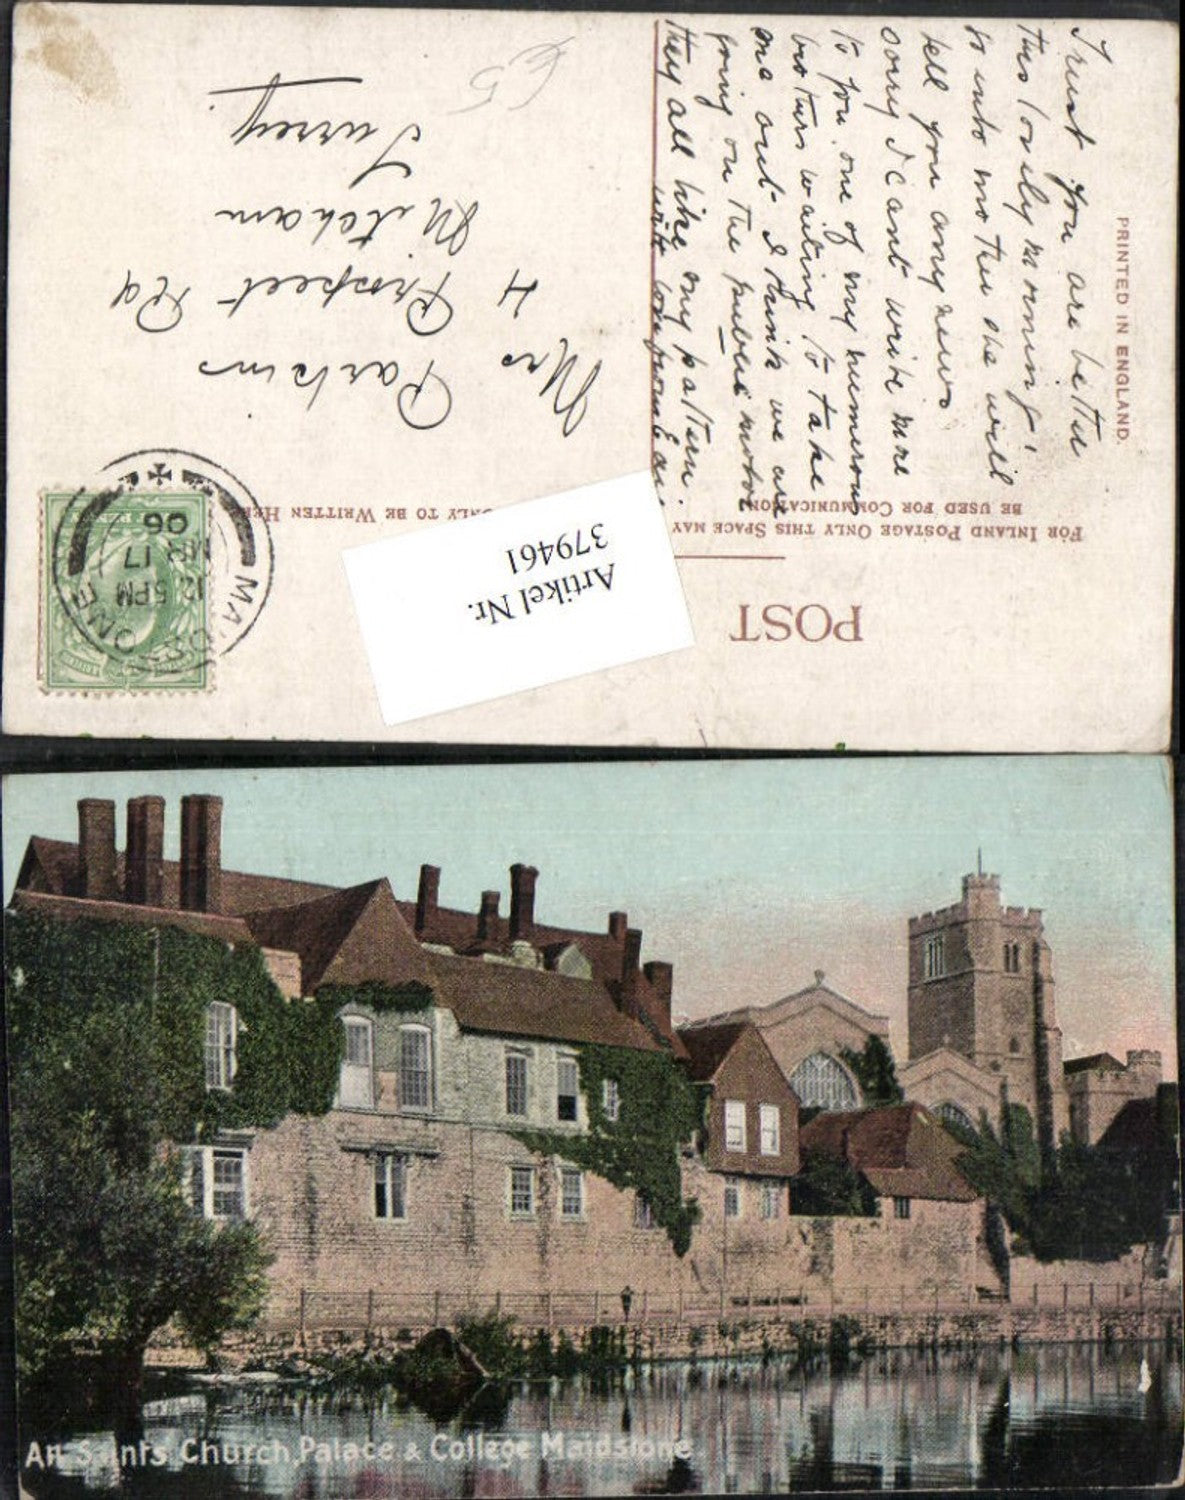 POST
FOR INLAND POSTAGE ONLY THIS SPACE MAY
BE USED FOR COMMUNICATION
ONLY TO BE WRITTEN HERE
PRINTED IN ENGLAND.
I trust you are better
this lovely morning!
so into mother she will
tell you any news
sorry I cant write more
to you, one of my numerous
brothers waiting to take
me out I think we are
going on the public motor
they all like my pattern.
with love from
Mrs
Parkins
4 Prospect Rd
Mitcham
Surrey
£5
MAIDSTONE
12.5PM
MR 17
06
Artikel Nr.
379461
All Saints' Church, Palace & College Maidstone